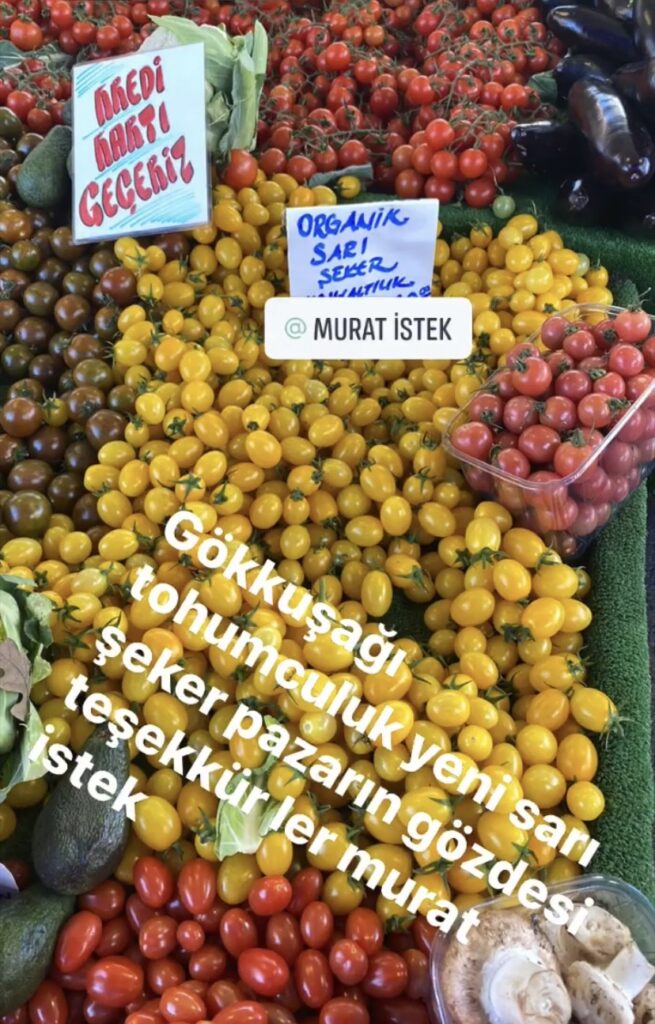 KREDİ
KARTI
GEÇERİZ
ORGANİK
SARI
ŞEKER
@ MURAT İSTEK
Gökkuşağı
tohumculuk yeni sarı
şeker pazarın gözdesi
teşekkür ler murat
istek